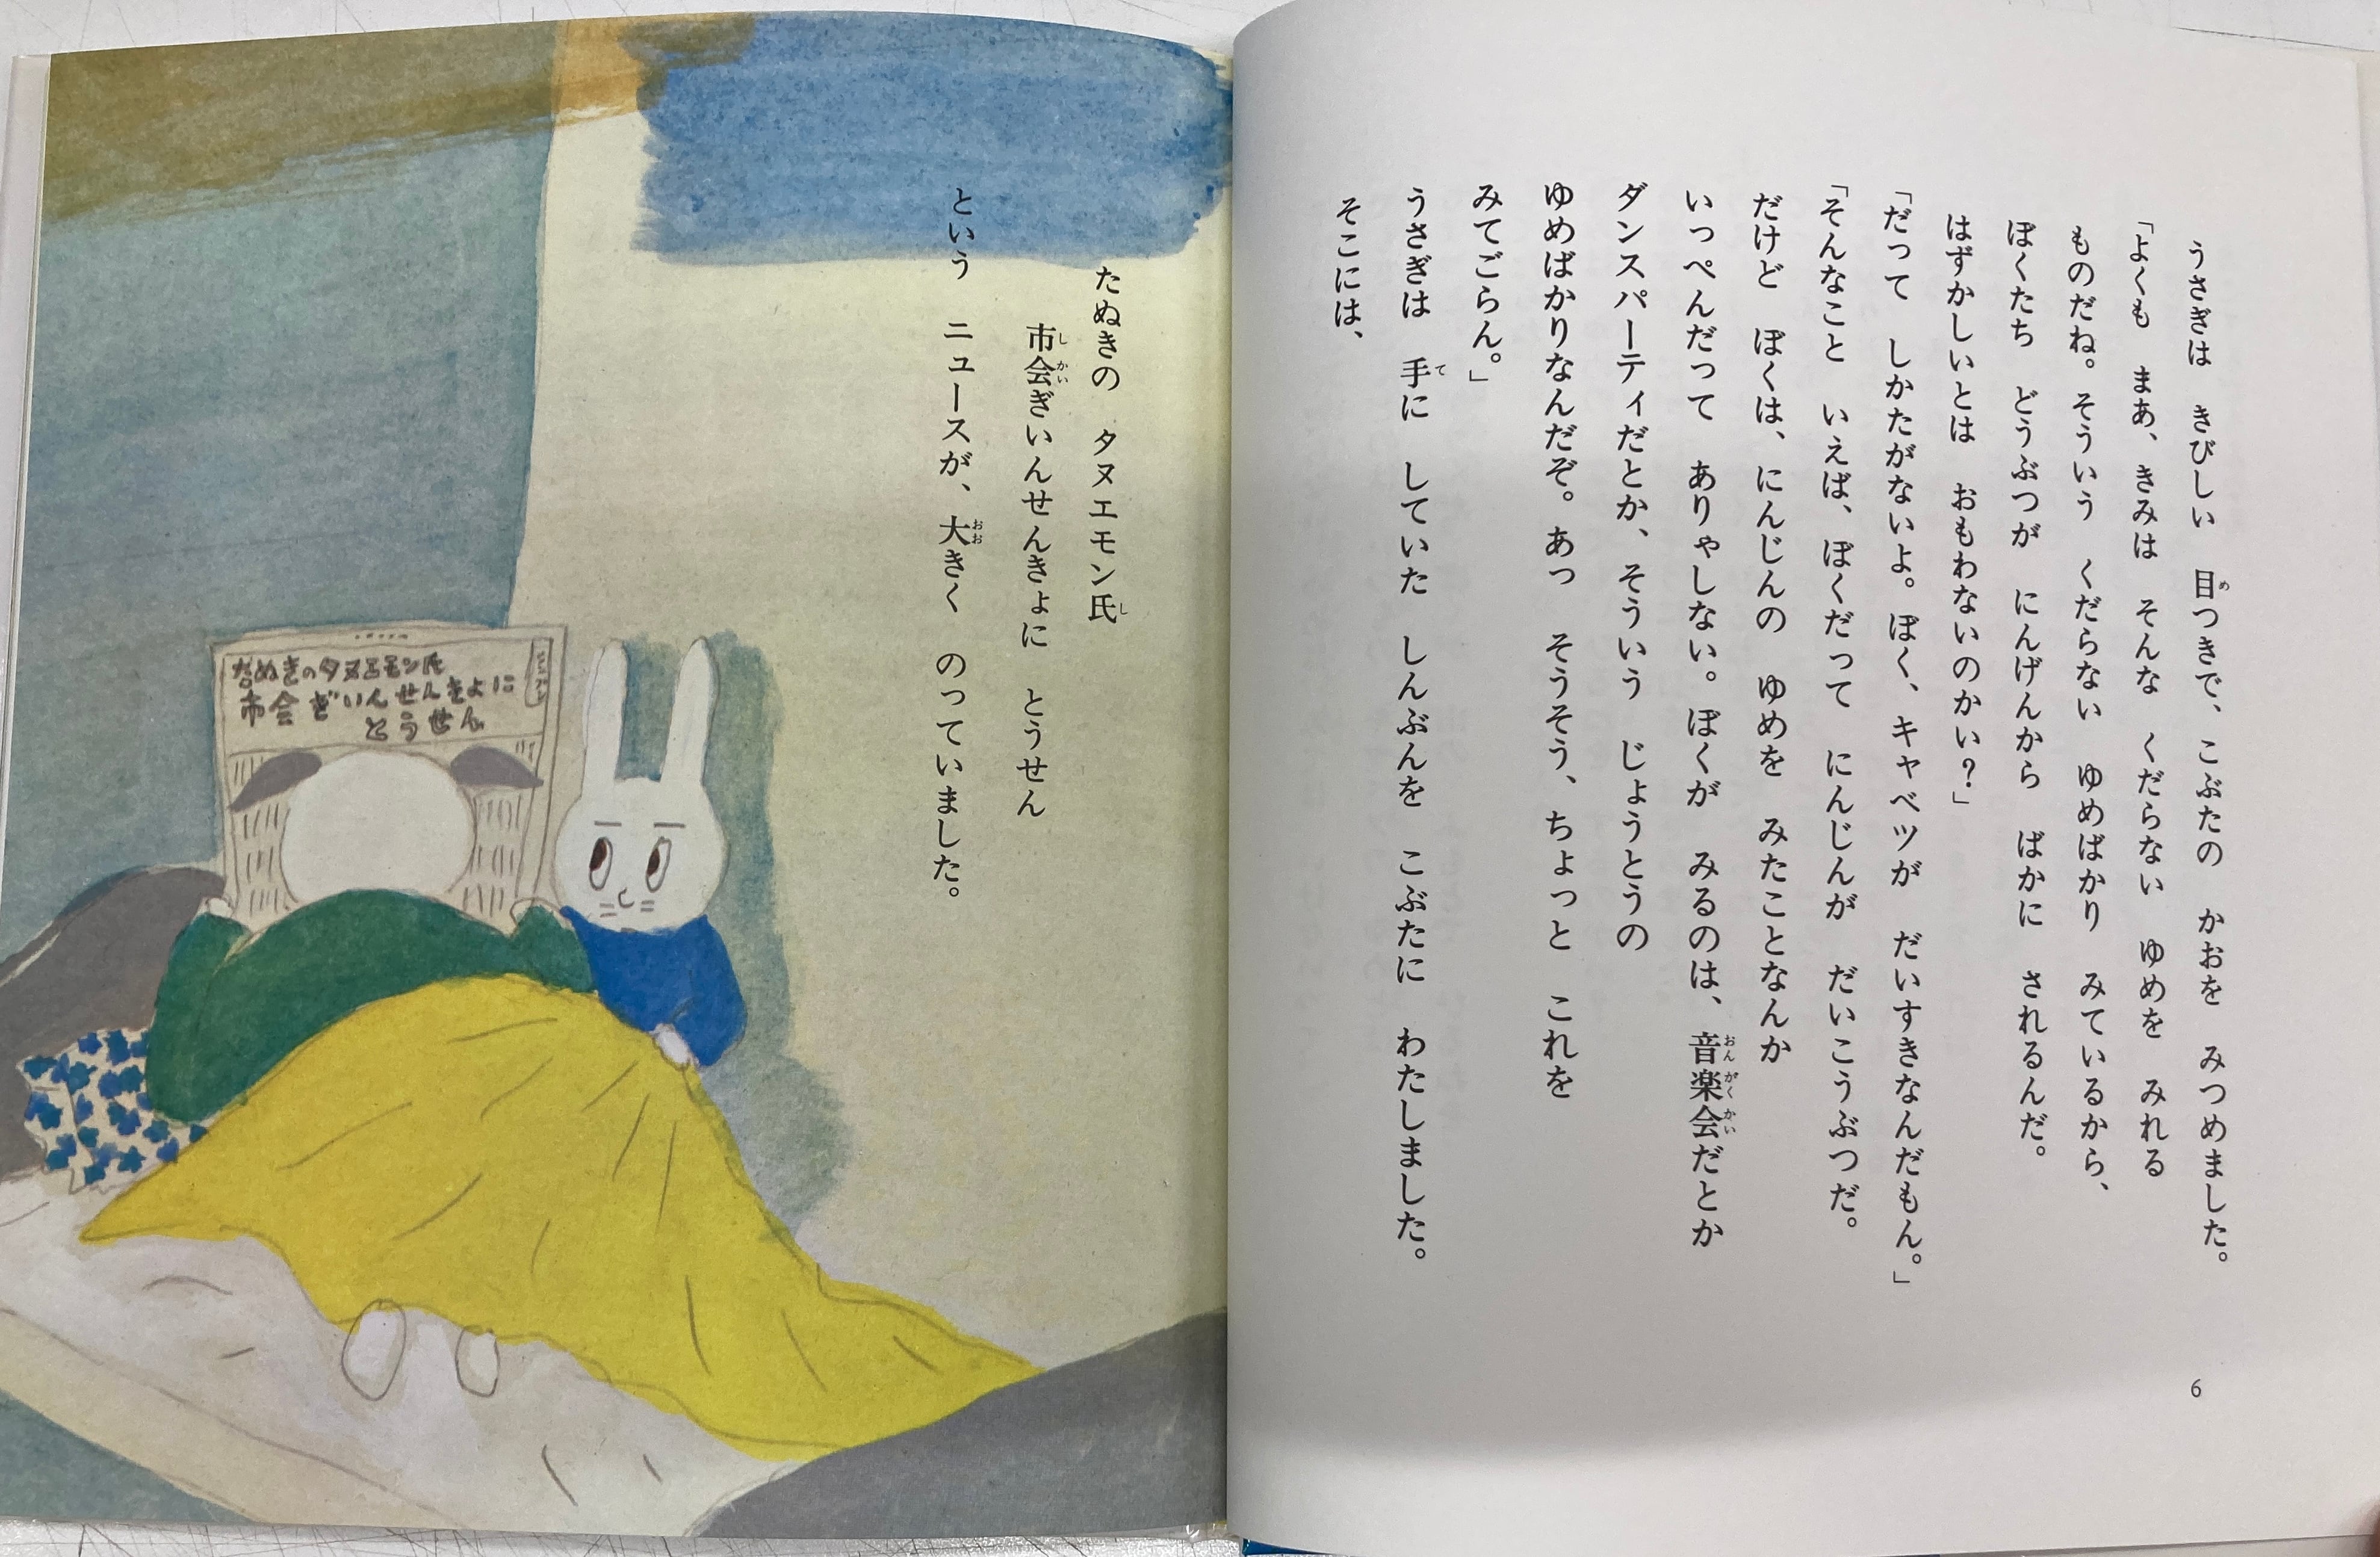 うさぎは　きびしい　目つきで、こぶたの　かおを　みつめました。
「よくも　まあ、きみは　そんな　くだらない　ゆめを　みれる
ものだね。そういう　くだらない　ゆめばかり　みているから、
ぼくたち　どうぶつが　にんげんから　ばかに　されるんだ。
はずかしいとは　おもわないのかい？」
「だって　しかたがないよ。ぼく、キャベツが　だいすきなんだもん。」
「そんなこと　いえば、ぼくだって　にんじんが　だいこうぶつだ。
だけど　ぼくは、にんじんの　ゆめを　みたことなんか
いっぺんだって　ありゃしない。ぼくが　みるのは、音楽会だとか
ダンスパーティだとか、そういう　じょうとうの
ゆめばかりなんだぞ。あっ　そうそう、ちょっと　これを
みてごらん。」
うさぎは　手に　していた　しんぶんを　こぶたに　わたしました。
そこには、
6
たぬきの　タヌエモン氏
市会ぎいんせんきょに　とうせん
という　ニュースが、大きく　のっていました。
たぬきのタヌエモン氏
市会ぎいんせんきょに
とうせん